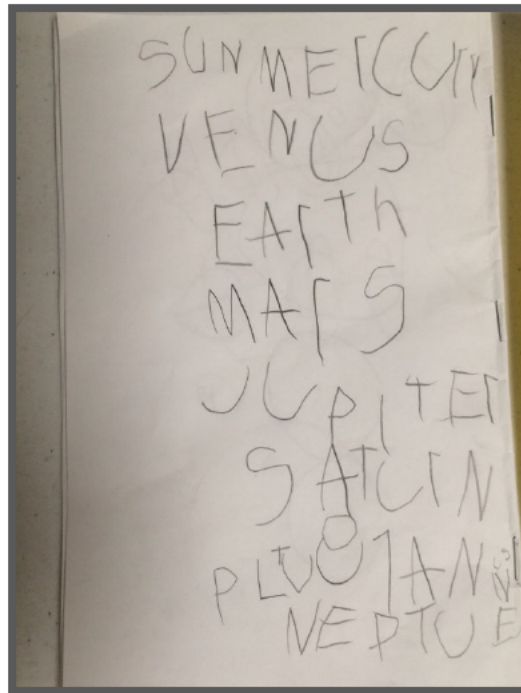 SUN MErCUrY
VENUS
EArTh
MArS
JUPITEr
SATUrN
PLUTO UrANUS
NEPTUE